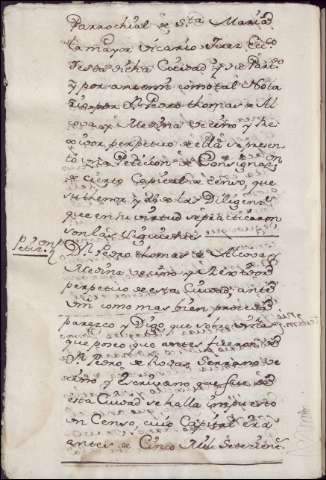 Parrochial de Sta. Maria
la mayor Vicario Juez Ecc
de esta dicha Ciudad y su Part
y por ante mi como tal Nota
por Dn. Pedro thomas de Al
Medina Vezino y Re
perpetuo de ella se presen
to Peticion de Consignaz.on
de cierto Capital de Censo, que
su thenor, y de las Diligen
que en su virtud se practicaron
son las siguientes
Petizion
Dn. Pedro thomas de Alcova
Medina Vezino y Rexidor
perpetuo de esta Ciudad, ante
Vm como mas bien proceda
parezco y Digo, que sobre
que poseo que antes fueron de
Dn. Pedro de Rojas Serrano
y Escrivano, que fue de
esta Ciudad se halla impuesto
un Censo, cuio Capital era
antes de Cinco Mil Setezient